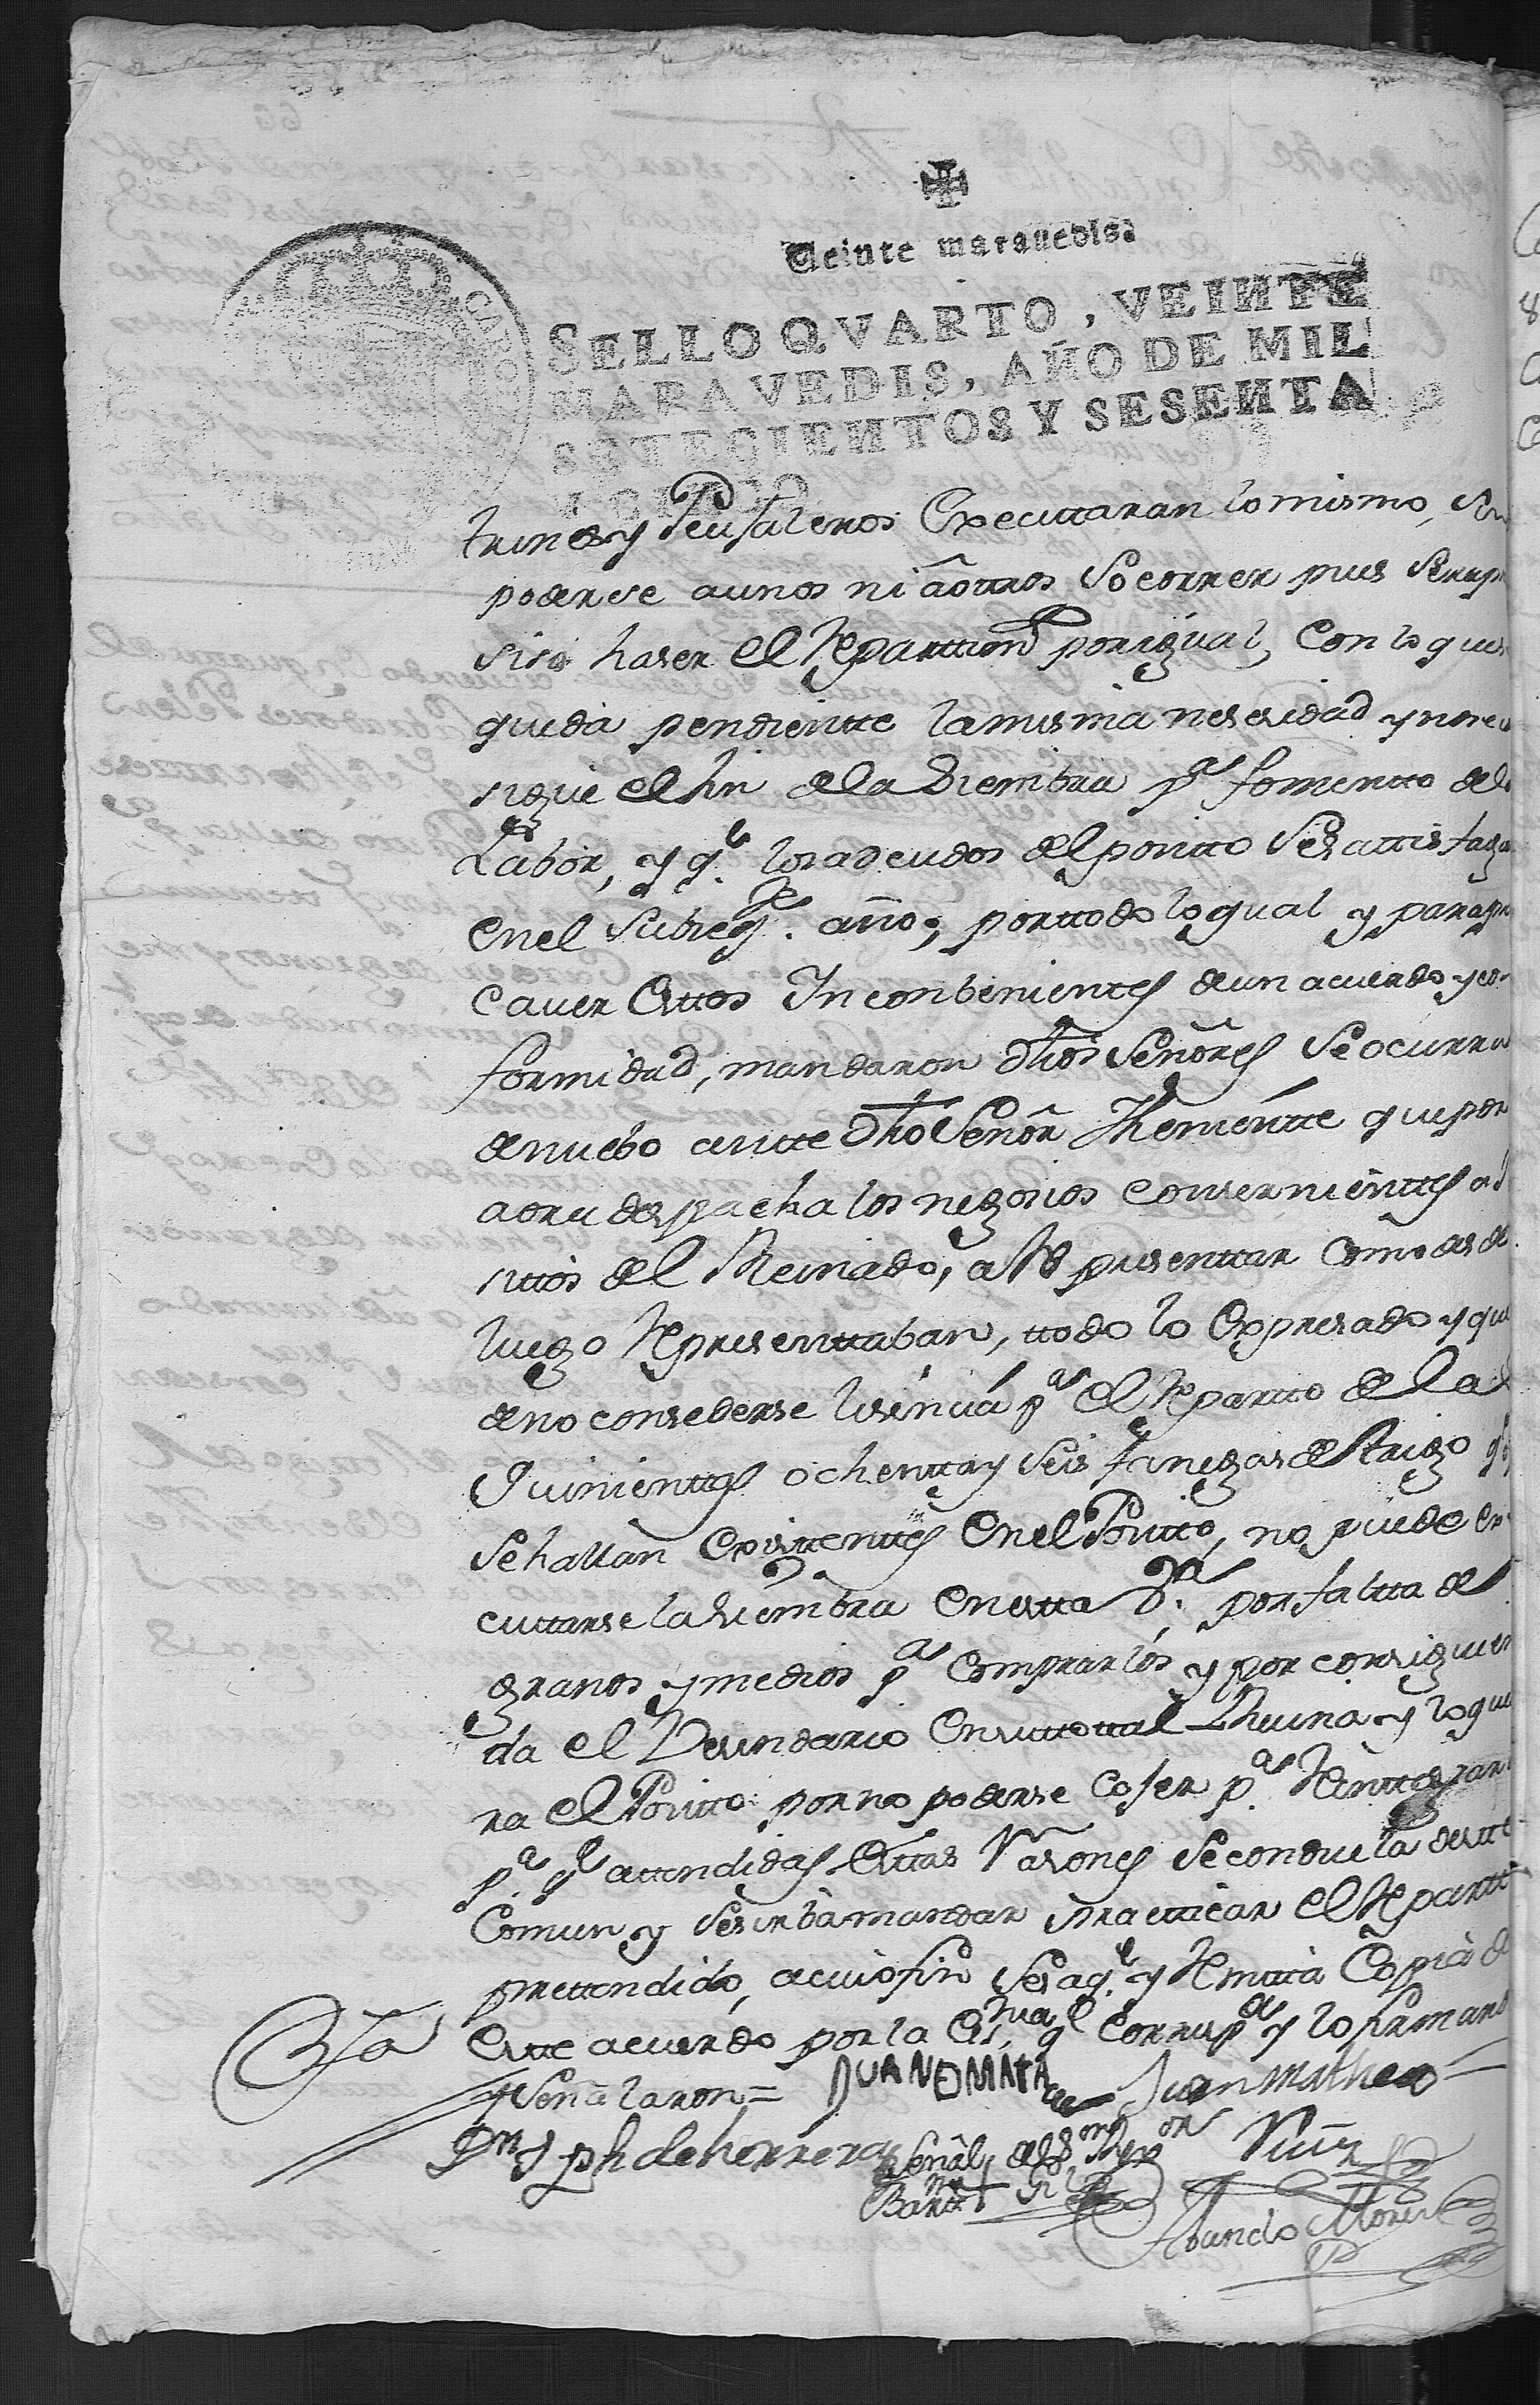 Veinte maravedis.
SELLO QVARTO, VEINTE
MARAVEDIS, AÑO DE MIL
SETECIENTOS Y SESENTA
Y CINCO
trines y Peujaleros Executtaran lo mismo, sin
poderse a unos ni a ottros Socorrer pues Serap
siso haser el Reparttimto por igual, Con lo que
queda pendientte la misma nesesidad y no se
sigue el fin de la Siembra pa fomentto de la
Labor, y qe los adeudos del positto Se sattisfaga
en el Subsegte año; por ttodo lo qual y para pre
caver esttos Inconbenienttes de un acuerdo y con
formidad, mandaron dhos Señores Se ocurra
de nuebo antte dho Señor Thenientte que por
aora despacha los negosios consernienttes a
sittos del Reinado, a Representtar como desde
luego Representtaban, ttodo lo Expresado y que
de no consederse lisencia pa el Repartto de las
Quinienttas ochentta y Seis fanegas de trigo qe
Se hallan Existenttes en el Positto, no puede exe
cuttarse la Siembra en estta Va por faltta de
granos y medios pa comprarlos y por consiguien
da el Vesindario en su ttottal Rhuina y lo que
ra el Positto por no poderse Cojer pa Reinttegrar
pa qe attendidas esttas Rasones Se conduela de estte
Comun y Se sirba mandar practticar el Repartto
prettendido, a cuio fin Se saqe y Remitta Copia de
estte acuerdo por la Essnia qe correspde y lo firmaron
y Señalaron =
JUAN DMATA
Juan Matheo
Dn Jph de herrera
Señal del Sor Rexor
Bartme